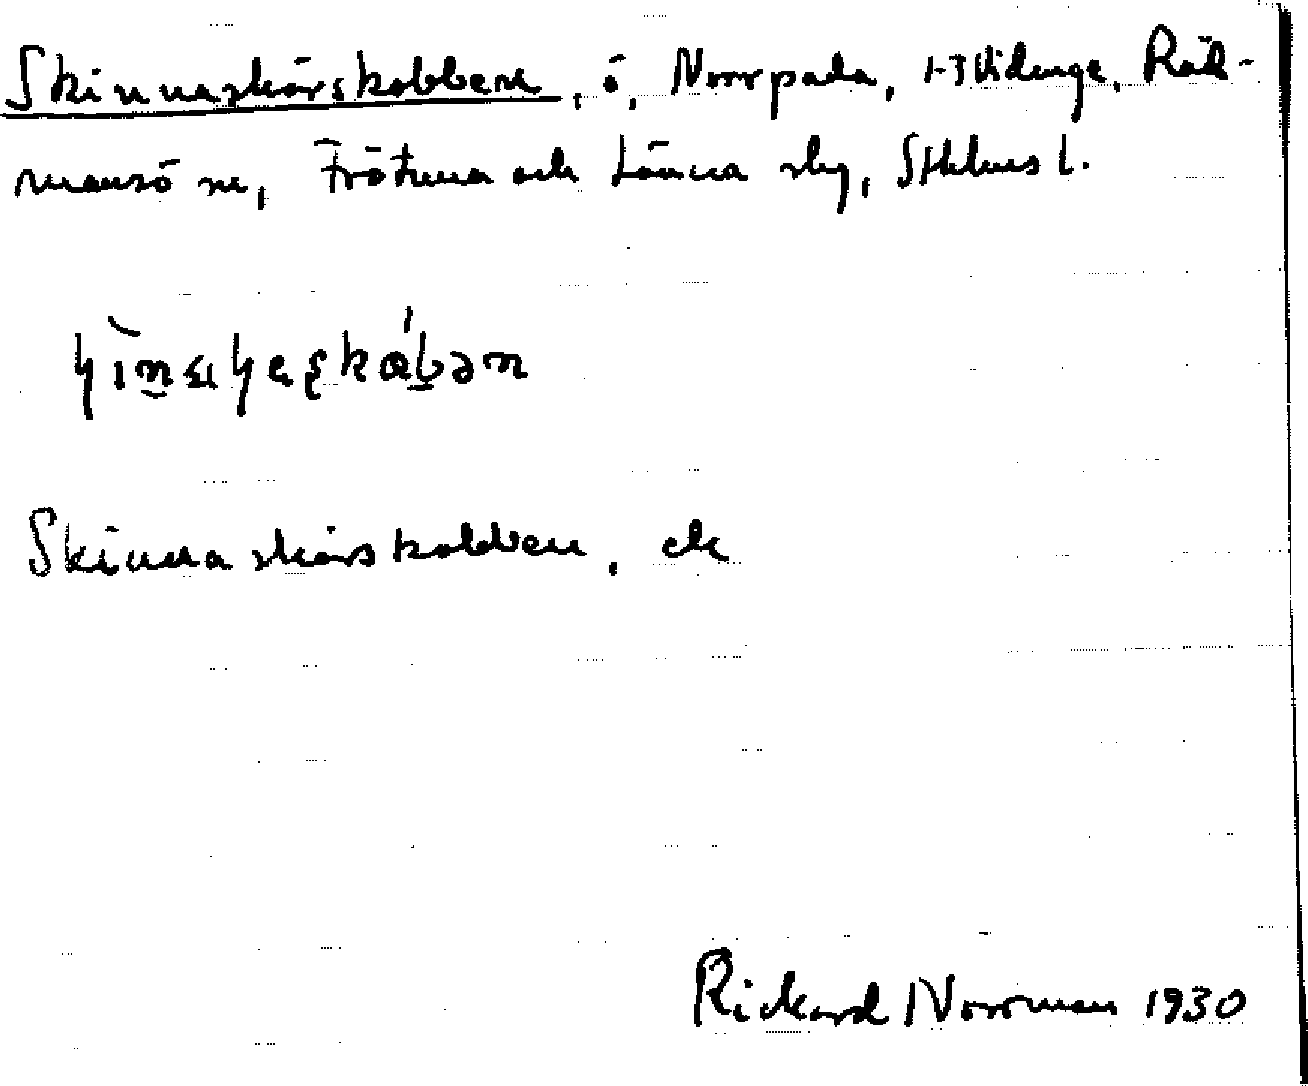 Skinnaskärskobben, ö, Norrpada, 1-3 Vidinge, Råd-
mansö sn, Frötuna och Länna slg, Sthlms l.
Skinnaskärskobben, ek
Rickard Norrman 1930